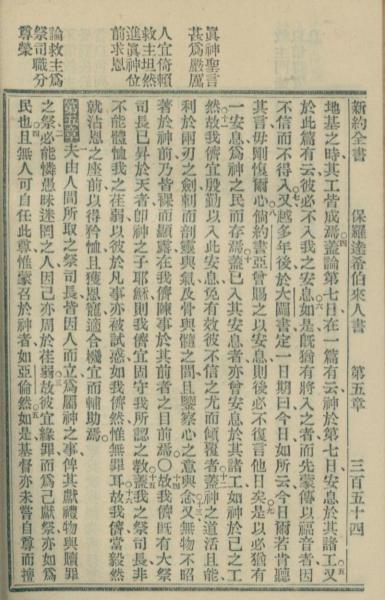 眞神聖言
甚爲嚴厲
人宜倚賴
救主坦然
進眞神位
前求恩
論救主爲
祭司職分
尊榮
新約全書 保羅達希伯來人書 第五章 三百五十四
地基之時其工皆成焉蓋論第七日在一篇有云神於第七日安息於其諸工又
於此篇有云彼必不入我之安息如是旣猶有將入之者而先蒙傳以福音者因
不信而不得入又越多年後於大闢書定一日期曰今日如所云今日爾若肯聽
其言毋剛愎爾心倘約書亞曾賜之以安息則後必不復言他日矣是以必猶有
一安息爲神之民而存焉蓋已入其安息者亦曾安息於其諸工如神於己之工
然故我儕宜殷勤以入此安息免有效彼不信之尤而傾覆者蓋神之道活且能
利於兩刃之劍刺而剖靈與氣及骨與髓之間且鑒察心之意與念又無物不昭
著於神前乃皆裸而顯露在我儕陳事於其前者之目前焉○故我儕旣有大祭
司長已昇於天者卽神之子耶穌則我儕宜固守我所認之教蓋我之祭司長非
不能體恤我之荏弱以彼於凡事亦被試惑如我儕然惟無罪耳故我儕當毅然
就沾恩之座前以得矜恤且獲恩寵適合機宜而輔助焉
第五章 夫由人間所取之祭司長皆因人而立爲屬神之事俾其獻禮物與贖罪
之祭必能憐愚昧迷罔之人因己亦周於荏弱故彼宜緣罪而爲己獻祭亦如爲
民也且無人可自任此尊惟蒙召於神者如亞倫然如是基督亦未嘗自尊而擅